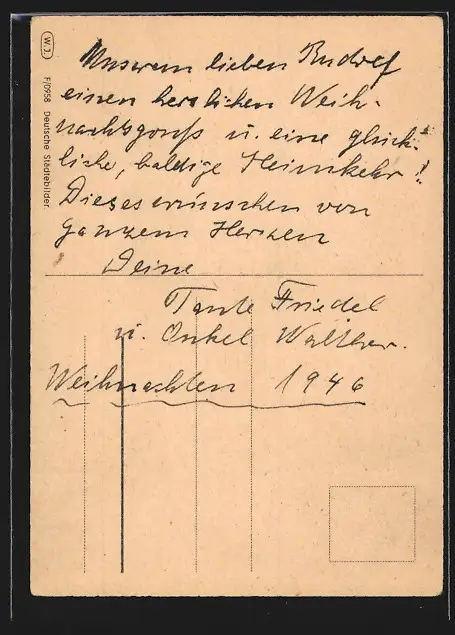 Unserem lieben Rudolf
einen herzlichen Weih-
nachtsgruß u. eine glück-
liche, baldige Heimkehr!
Dieses wünschen von
ganzem Herzen
Deine
Tante Friedel
u. Onkel Walther.
Weihnachten 1946
W.J.
F/0958 Deutsche Städtebilder